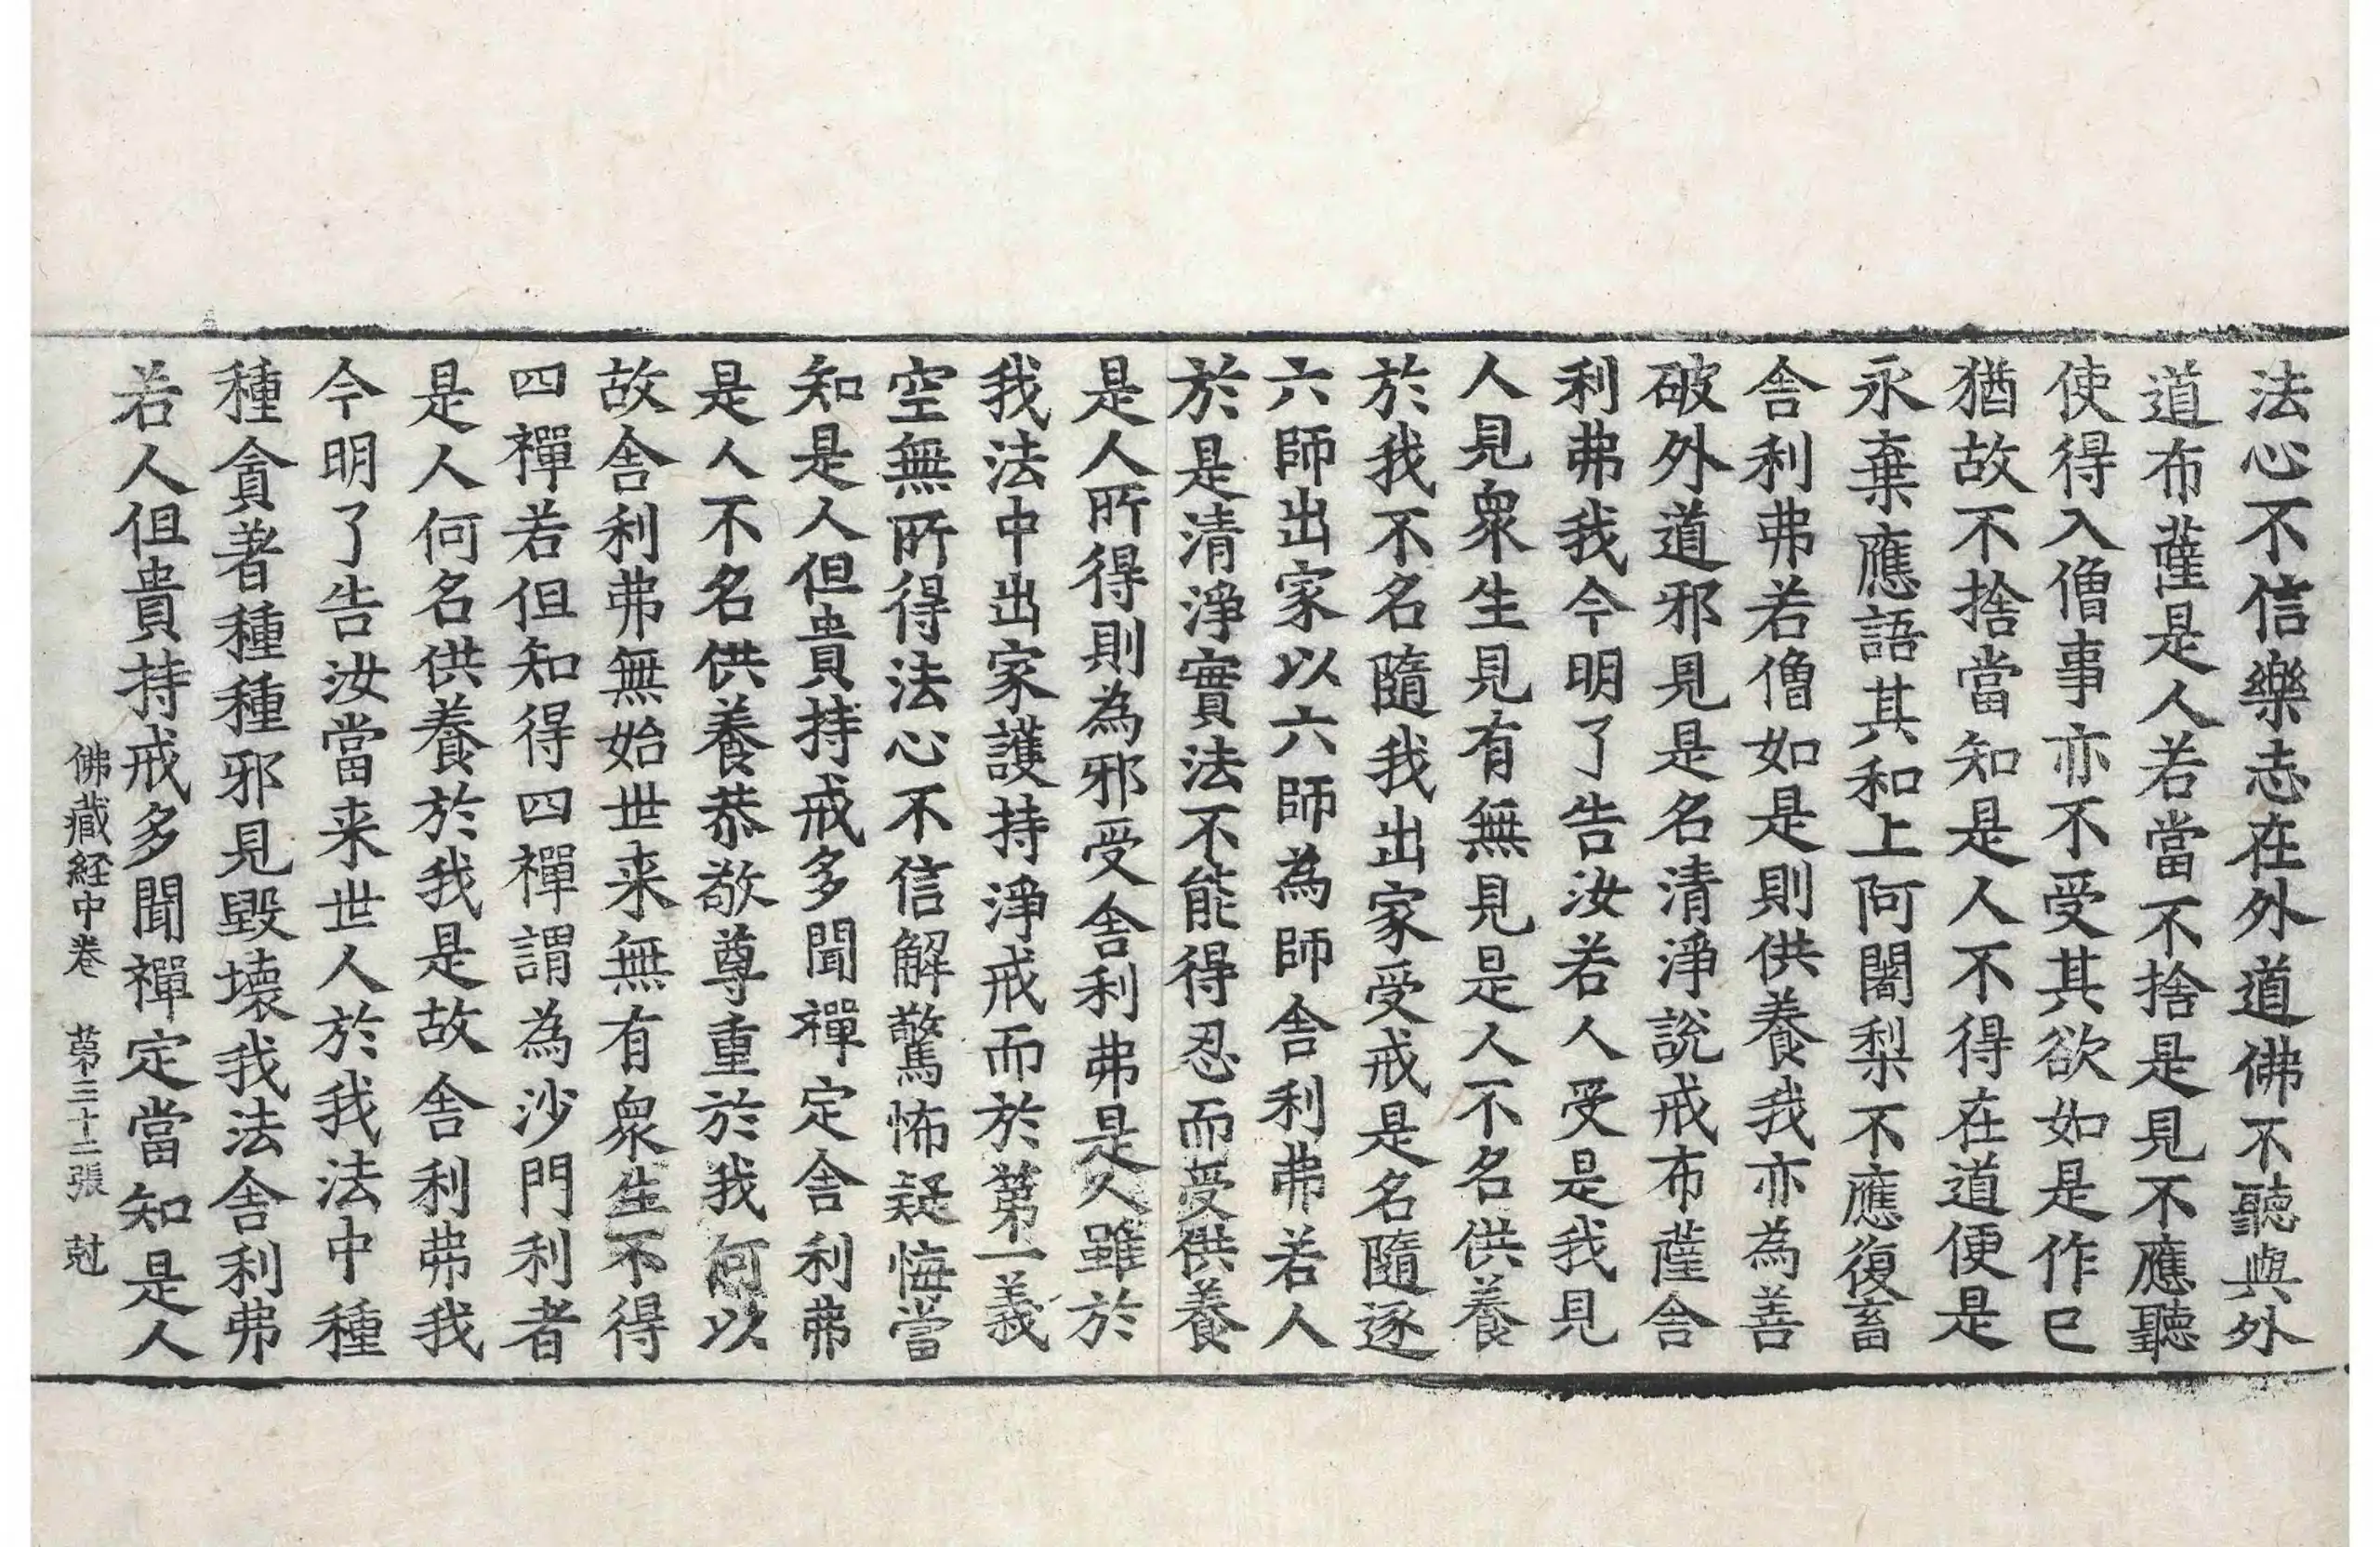 法心不信樂志在外道佛不聽與外
道布薩是人若當不捨是見不應聽
使得入僧事亦不受其欲如是作已
猶故不捨當知是人不得在道便是
永棄應語其和上阿闍梨不應復畜
舎利弗若僧如是則供養我亦為善
破外道邪見是名清淨說戒布薩舎
利弗我今明了告汝若人受是我見
人見衆生見有無見是人不名供養
於我不名隨我出家受戒是名隨逐
六師出家以六師為師舎利弗若人
於是清淨實法不能得忍而受供養
是人所得則為邪受舎利弗是人雖於
我法中出家護持淨戒而於第一義
空無所得法心不信解驚怖疑悔當
知是人但貴持戒多聞禪定舎利弗
是人不名供養恭敬尊重於我何以
故舎利弗無始世来無有衆生不得
四禪若但知得四禪謂為沙門利者
是人何名供養於我是故舎利弗我
今明了告汝當来世人於我法中種
種貪著種種邪見毀壞我法舎利弗
若人但貴持戒多聞禪定當知是人
佛藏経中卷 第三十二張 尅